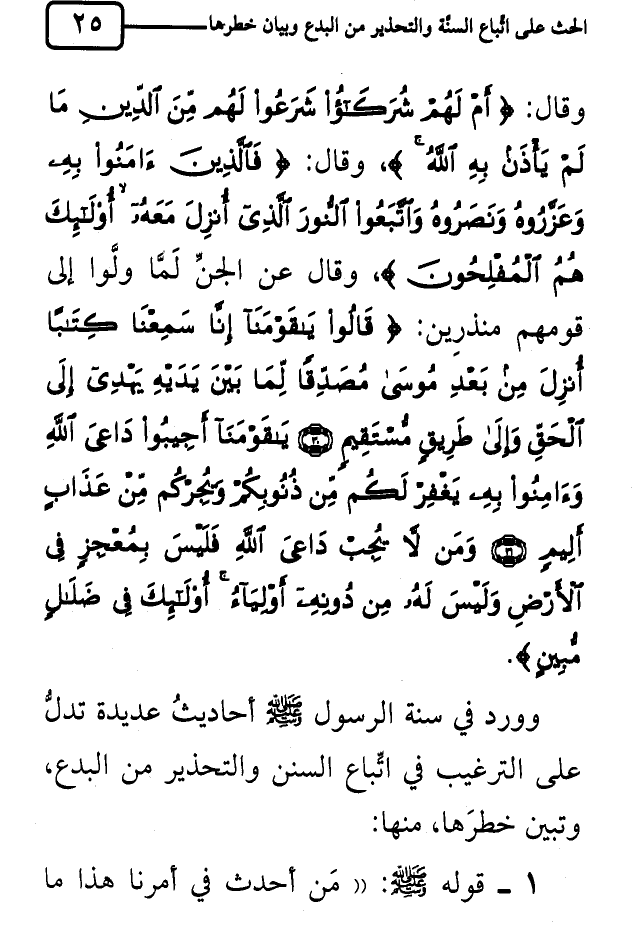 الحث على اتّباع السنَّة والتحذير من البدع وبيان خطرها ٢٥
وقال: ﴿ أَمْ لَهُمْ شُرَكَٰٓؤُا۟ شَرَعُوا۟ لَهُم مِّنَ ٱلدِّينِ مَا
لَمْ يَأْذَنۢ بِهِ ٱللَّهُ ۚ ﴾، وقال: ﴿ فَٱلَّذِينَ ءَامَنُوا۟ بِهِۦ
وَعَزَّرُوهُ وَنَصَرُوهُ وَٱتَّبَعُوا۟ ٱلنُّورَ ٱلَّذِىٓ أُنزِلَ مَعَهُۥٓ ۙ أُو۟لَٰٓئِكَ
هُمُ ٱلْمُفْلِحُونَ ﴾، وقال عن الجنِّ لَمَّا ولَّوا إلى
قومهم منذرِين: ﴿ قَالُوا۟ يَٰقَوْمَنَآ إِنَّا سَمِعْنَا كِتَٰبًا
أُنزِلَ مِنۢ بَعْدِ مُوسَىٰ مُصَدِّقًا لِّمَا بَيْنَ يَدَيْهِ يَهْدِىٓ إِلَى
ٱلْحَقِّ وَإِلَىٰ طَرِيقٍ مُّسْتَقِيمٍ ٣٠ يَٰقَوْمَنَآ أَجِيبُوا۟ دَاعِىَ ٱللَّهِ
وَءَامِنُوا۟ بِهِۦ يَغْفِرْ لَكُم مِّن ذُنُوبِكُمْ وَيُجِرْكُم مِّنْ عَذَابٍ
أَلِيمٍ ٣١ وَمَن لَّا يُجِبْ دَاعِىَ ٱللَّهِ فَلَيْسَ بِمُعْجِزٍ فِى
ٱلْأَرْضِ وَلَيْسَ لَهُۥ مِن دُونِهِۦٓ أَوْلِيَآءُ ۚ أُو۟لَٰٓئِكَ فِى ضَلَٰلٍ
مُّبِينٍ ﴾.
وورد في سنة الرسول ﷺ أحاديثُ عديدة تدلُّ
على الترغيب في اتِّباع السنن والتحذير من البدع،
وتبين خطرَها، منها:
١ ـ قوله ﷺ: (( مَن أحدث في أمرنا هذا ما